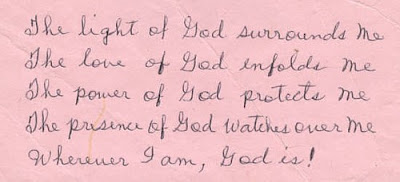 The light of God surrounds Me
The love of God enfolds Me
The power of God protects Me
The prisence of God Watches over Me
Wherever I am, God is!